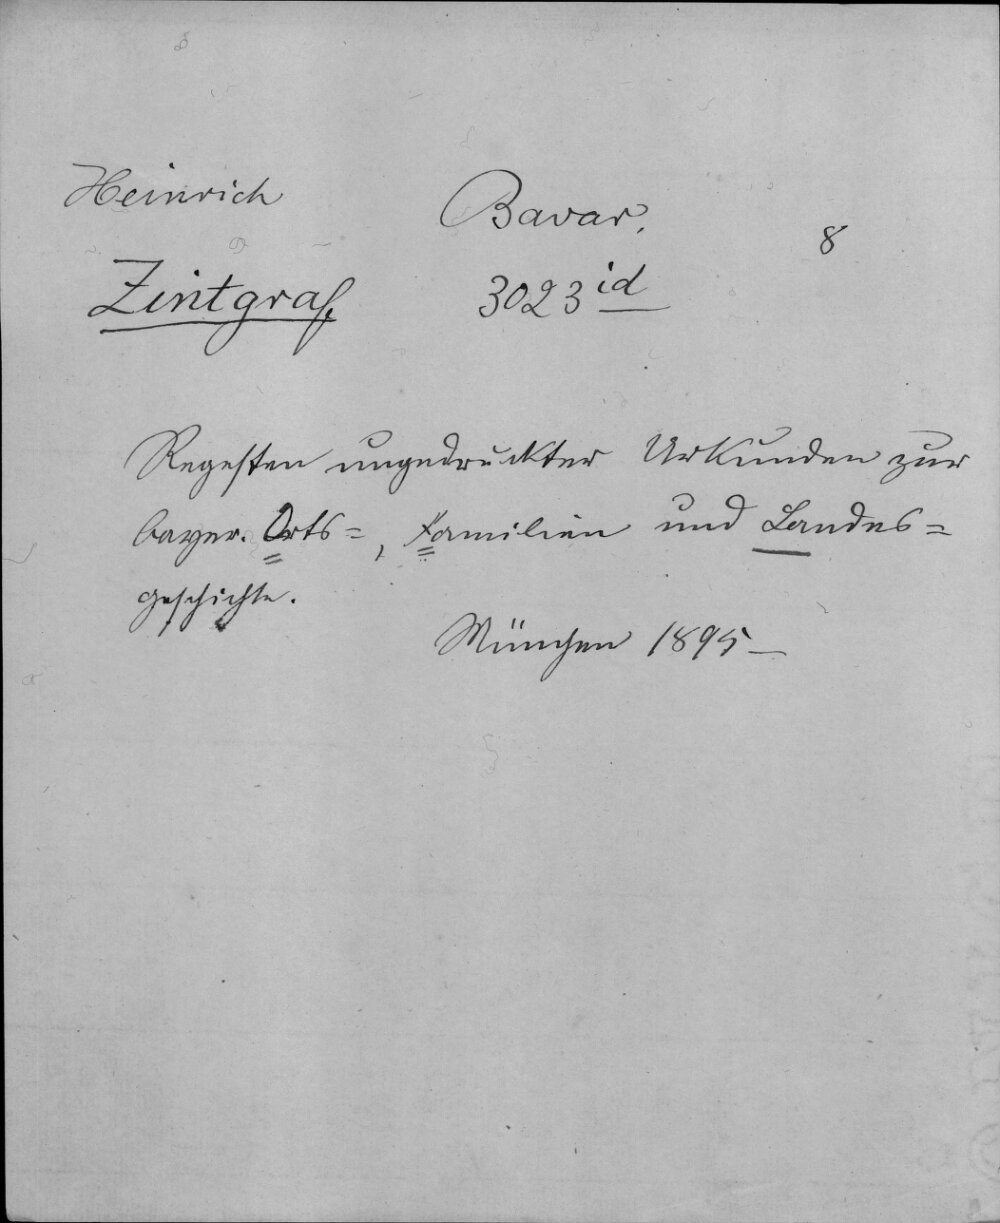 Heinrich
Bavar.
8
Zintgraf.
3023 id
Regesten ungedruckter Urkunden zur
bayer. Orts=, Familien und Landes=
geschichte.
München 1895